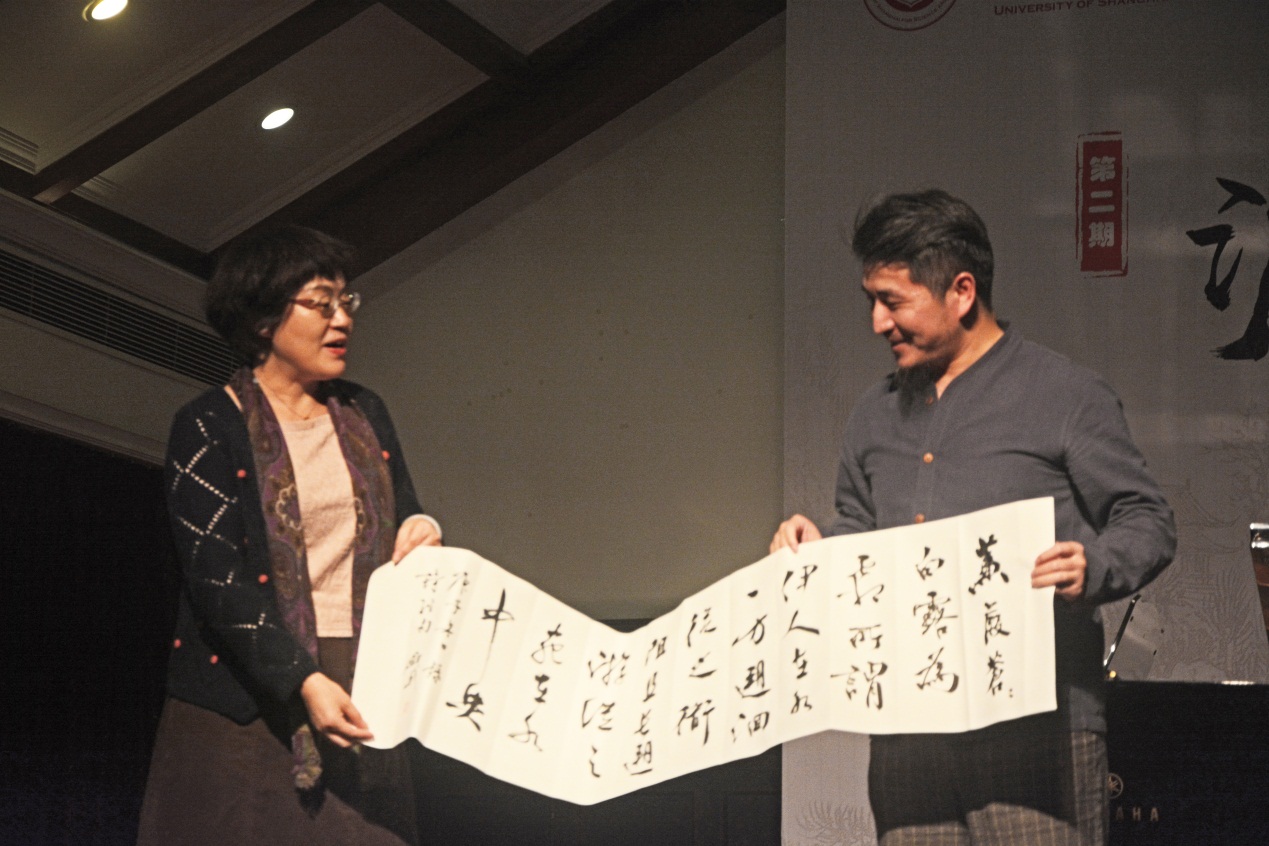 UNIVERSITY OF
第二期
蒹葭蒼〻
白露為
霜所謂
伊人在水
一方遡洄
從之衜
阻且長遡
游從之
宛在水
中央
AHA